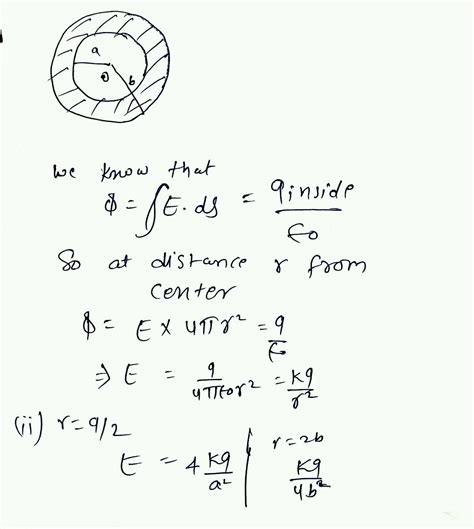 a
O
b
we know that
ϕ = ∫E.ds = qinside/ε0
So at distance r from
center
ϕ = E x 4πr² = q/ε0
⇒ E = q/4πε0r² = Kq/r²
(ii) r = a/2
E = 4 Kq/a²
r = 2b
Kq/4b²